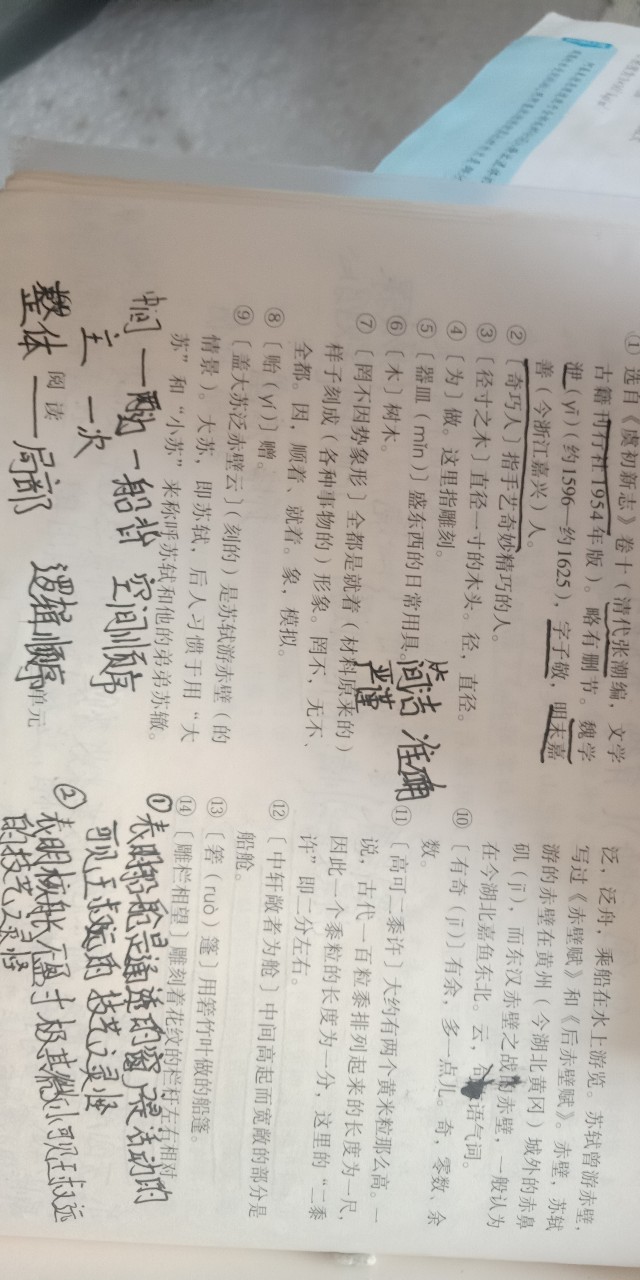 ① 选自《虞初新志》卷十（清代张潮编，文学
古籍刊行社1954年版）。略有删节。魏学
洢（yī）（约1596—约1625），字子敬，明末嘉
善（今浙江嘉兴）人。
② 〔奇巧人〕指手艺奇妙精巧的人。
③ 〔径寸之木〕直径一寸的木头。径，直径。
④ 〔为〕做。这里指雕刻。
⑤ 〔器皿（mǐn）〕盛东西的日常用具。
⑥ 〔木〕树木。
简洁 准确
严谨
⑦ 〔罔不因势象形〕全都是就着（材料原来的）
样子刻成（各种事物的）形象。罔不，无不、
全都。因，顺着、就着。象，模拟。
⑧ 〔贻（yí）〕赠。
⑨ 〔盖大苏泛赤壁云〕（刻的）是苏轼游赤壁（的
情景）。大苏，即苏轼，后人习惯于用“大
苏”和“小苏”来称呼苏轼和他的弟弟苏辙。
泛，泛舟，乘船在水上游览。苏轼曾游赤壁，
写过《赤壁赋》和《后赤壁赋》。赤壁，苏轼
游的赤壁在黄州（今湖北黄冈）城外的赤鼻
矶（jī），而东汉赤壁之战的赤壁，一般认为
在今湖北嘉鱼东北。云，句 语气词。
⑩ 〔有奇（jī）〕有余，多一点儿。奇，零数、余
数。
⑪ 〔高可二黍许〕大约有两个黄米粒那么高。一
说，古代一百粒黍排列起来的长度为一尺，
因此一个黍粒的长度为一分，这里的“二黍
许”即二分左右。
⑫ 〔中轩敞者为舱〕中间高起而宽敞的部分是
船舱。
⑬ 〔箬（ruò）篷〕用箬竹叶做的船篷。
⑭ 〔雕栏相望〕雕刻着花纹的栏杆左右相对
中间 — 船背 空间顺序
主 — 次
整体 — 局部 逻辑顺序
阅读
单元
①表明船舱是通透的窗 是活动的
可见王叔远的技艺之灵怪
②表明核舟不盈寸极其微小可见王叔远
的技艺之灵怪